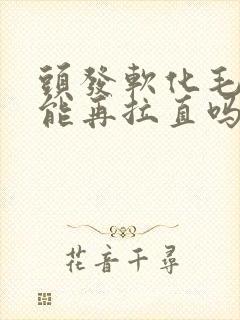 頭發軟化毛
能再拉直嗎
花音千尋